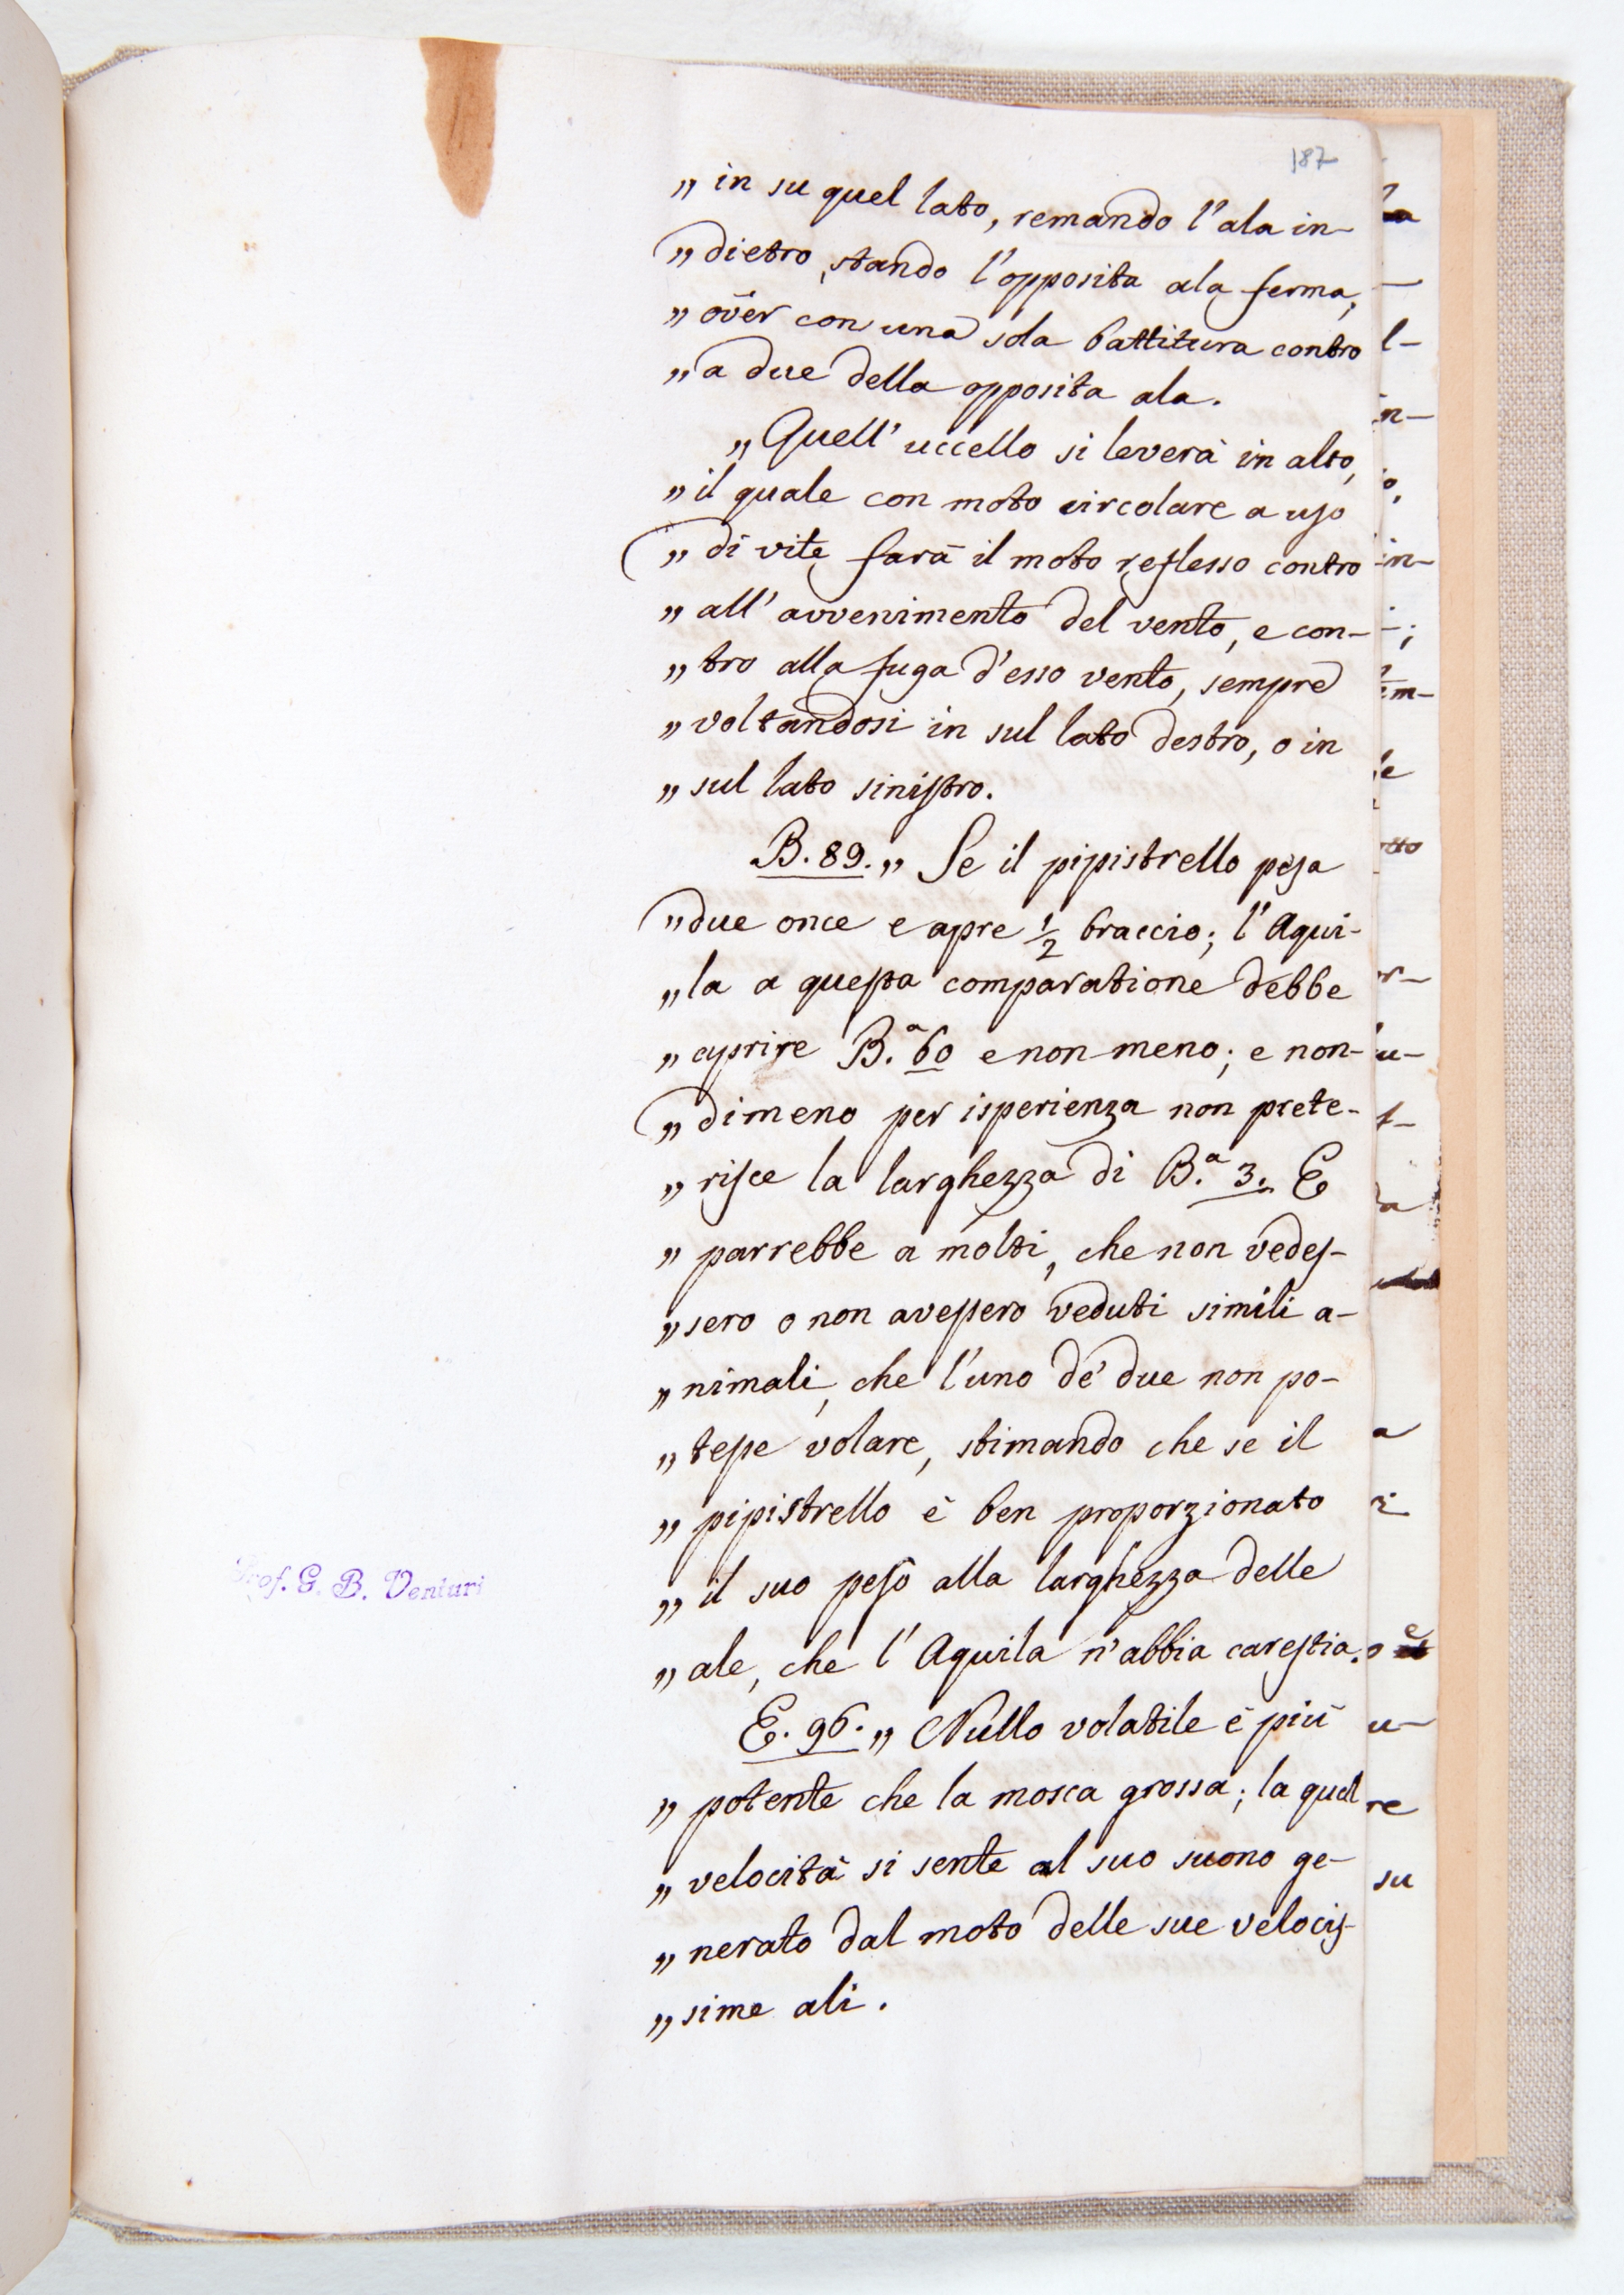 187
„ in su quel lato, remando l'ala in-
„ dietro, stando l'opposita ala ferma;
„ over con una sola battitura contro
„ a due della opposita ala.
„ Quell' uccello si leverà in alto,
„ il quale con moto circolare a uso
„ di vite farà il moto reflesso contro
„ all' avvenimento del vento, e con-
„ tro alla fuga d'esso vento, sempre
„ voltandosi in sul lato destro, o in
„ sul lato sinistro.
B. 89. „ Se il pipistrello pesa
„ due once e apre 1/2 braccio; l'Aqui-
„ la a questa comparatione debbe
„ aprire B.ª 60 e non meno; e non-
„ dimeno per isperienza non prete-
„ risce la larghezza di B.ª 3. E
„ parrebbe a molti, che non vedes-
„ sero o non avessero veduti simili a-
„ nimali, che l'uno de' due non po-
„ tesse volare, stimando che se il
„ pipistrello è ben proporzionato
„ il suo peso alla larghezza delle
„ ale, che l'Aquila n'abbia carestia.
E. 96. „ Nullo volatile è più
„ potente che la mosca grossa; la qual
„ velocità si sente al suo suono ge-
„ nerato dal moto delle sue velocis-
„ sime ali.
Prof. G. B. Venturi